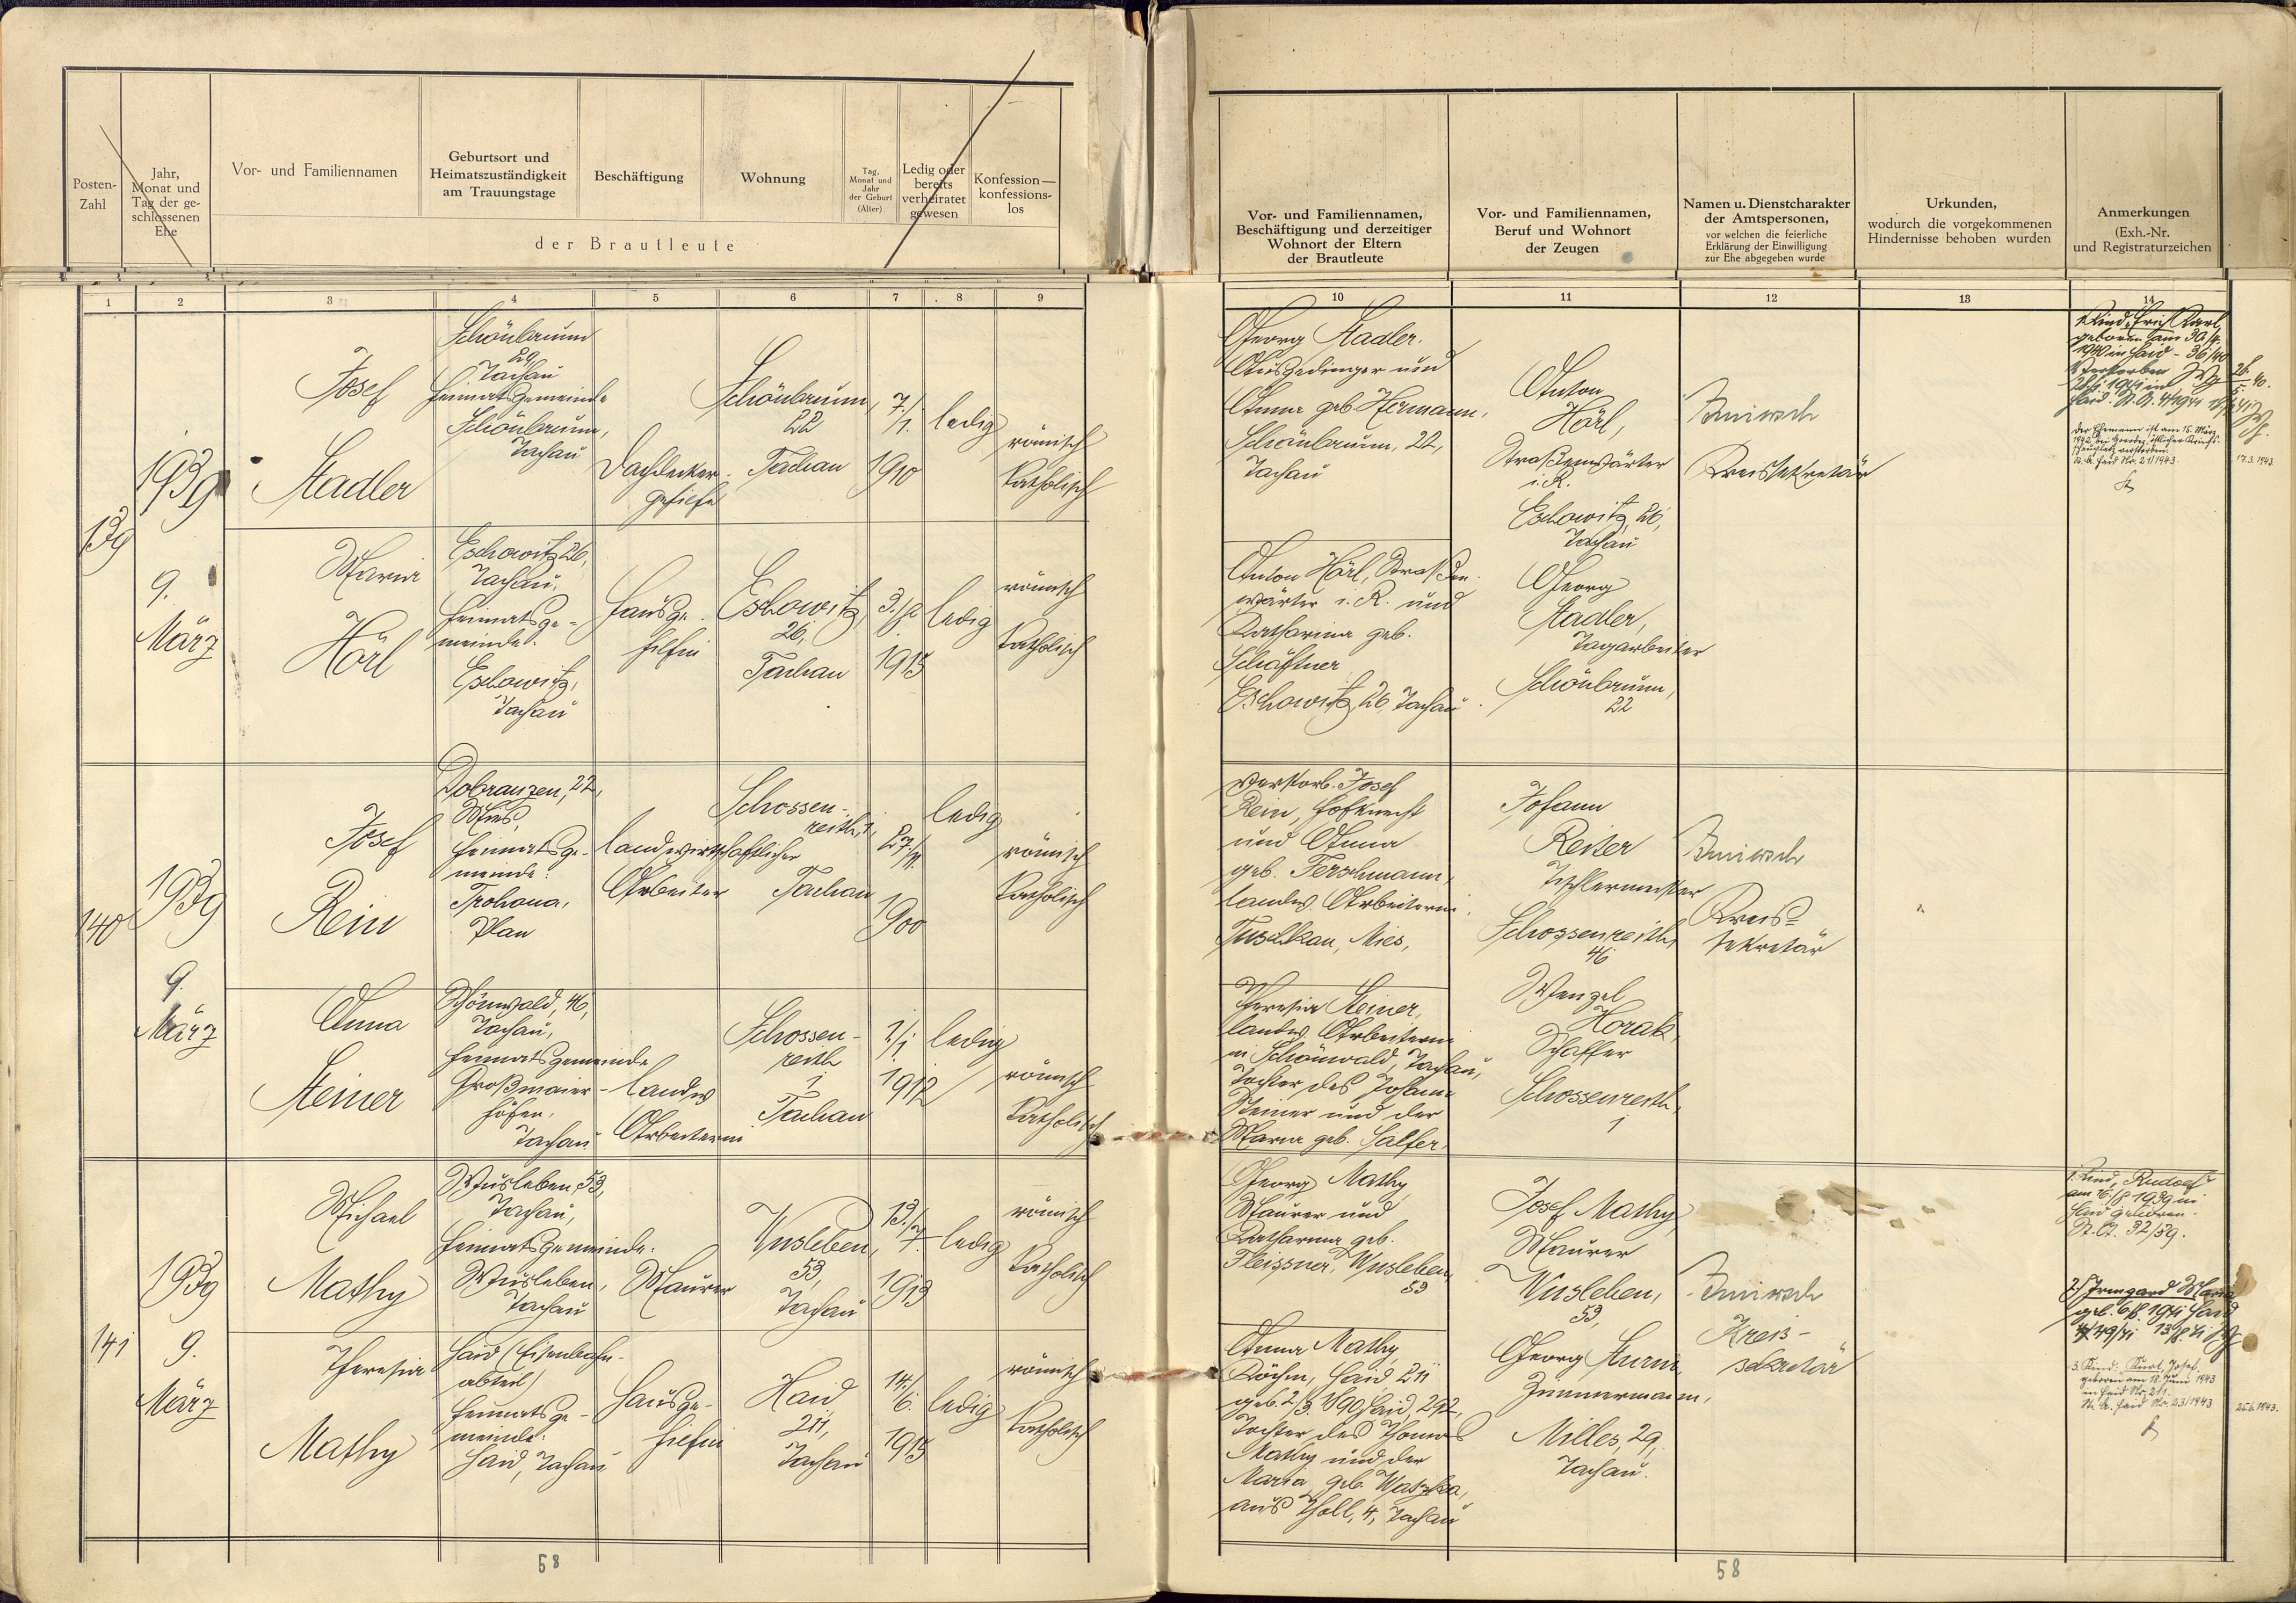 Posten-
Zahl
Jahr,
Monat und
Tag der ge-
schlossenen
Ehe
Vor- und Familiennamen
Geburtsort und
Heimatszuständigkeit
am Trauungstage
Beschäftigung
Wohnung
Tag,
Monat und
Jahr
der Geburt
(Alter)
Ledig oder
bereits
verheiratet
gewesen
Konfession—
konfessions-
los
der Brautleute
Vor- und Familiennamen,
Beschäftigung und derzeitiger
Wohnort der Eltern
der Brautleute
Vor- und Familiennamen,
Beruf und Wohnort
der Zeugen
Namen u. Dienstcharakter
der Amtspersonen,
vor welchen die feierliche
Erklärung der Einwilligung
zur Ehe abgegeben wurde
Urkunden,
wodurch die vorgekommenen
Hindernisse behoben wurden
Anmerkungen
(Exh.-Nr.
und Registraturzeichen
1 2 3 4 5 6 7 8 9
10 11 12 13 14
139
1939
9.
März
Josef
Stadler
Schönbrunn
29,
Tachau
Heimatsgemeinde
Schönbrunn,
Tachau
Dachdecker-
gehilfe
Schönbrunn,
22
Tachau
7./1.
1910
ledig
römisch
katholisch
Georg Stadler.
Ausgedinger und
Anna geb. Hermann,
Schönbrunn, 22,
Tachau
Anton
Hörl,
Straßenwärter
i. R.
Eschowitz, 26,
Tachau
Kreissekretär
1. Kind: Erich Karl,
geboren am 30/4.
1940 in Haid - 36/40
Verstorben
Haid. St. A. 4/1941
Der Ehemann ist am 15. März
1942, bei Gorbez, östlicher Kriegs-
schauplatz verstorben.
St. A. Haid Nr. 21/1943.
17.3.1943
Maria
Hörl
Eschowitz 26,
Tachau,
Heimatsge-
meinde:
Eschowitz,
Tachau
Hausge-
hilfin
Eschowitz,
26,
Tachau
3./2
1915
ledig
römisch
katholisch
Anton Hörl, Straßen-
wärter i. R. und
Katharina geb.
Schäftner
Eschowitz, 26, Tachau
Georg
Stadler,
Tagarbeiter
Schönbrunn,
22
140
1939
9.
März
Josef
Rein
Dobranzen, 22,
Mies,
Heimatsge-
meinde:
Trohona,
Plan
landwirtschaftlicher
Arbeiter
Schossen-
reith, 1,
Tachau
27./11.
1900
ledig
römisch
katholisch
verstorb. Josef
Rein, Hofknecht
und Anna
geb. Ferschmann,
landw. Arbeiterin
Tuschkau, Mies,
Johann
Reiter
Tischlermeister
Schossenreith,
46
Kreis-
sekretär
Anna
Steiner
Schönwald, 46,
Tachau,
Heimatsgemeinde
Großmaier-
höfen,
Tachau
landw
Arbeiterin
Schossen-
reith
1
Tachau
2/1
1912
ledig
römisch
katholisch
Theresia Steiner,
landw. Arbeiterin
in Schönwald, Tachau,
Tochter des Johann
Steiner und der
Maria geb. Salfer.
Wenzel
Horak,
Schaffer
Schossenreith,
1
141
1939
9.
März
Michael
Mathy
Wusleben, 53,
Tachau,
Heimatsgemeinde:
Wusleben,
Tachau
Maurer
Wusleben,
53,
Tachau
13./7.
1913
ledig
römisch
katholisch
Georg Mathy,
Maurer und
Katharina geb.
Fleissner, Wusleben,
53
Josef Mathy,
Maurer
Wusleben,
53,
Kreis-
sekretär
1. Kind, Rudolf
am 16/8 1939 in
Haid geboren.
St. A. 32/39.
2.) Irmgard Maria
geb. 6/8. 1941 Haid
49/41 13/8. 41
3. Kind: Kurt, Josef,
geboren am 18. Juni 1943
in Haid Nr. 211.
St. A. Haid Nr. 23/1943
25.6.1943.
Theresia
Mathy
Haid (Eisenbahn-
abteil)
Heimatsge-
meinde:
Haid, Tachau
Hausge-
hilfin
Haid,
211,
Tachau
14./6.
1915
ledig
römisch
katholisch
Anna Mathy,
Köchin, Haid 211
geb. 2/3. 1890 Haid, 292,
Tochter des Thomas
Mathy und der
Maria, geb. Watzka,
aus Tholl, 4, Tachau
Georg Sturm,
Zimmermann,
Milles, 29,
Tachau.
58
58